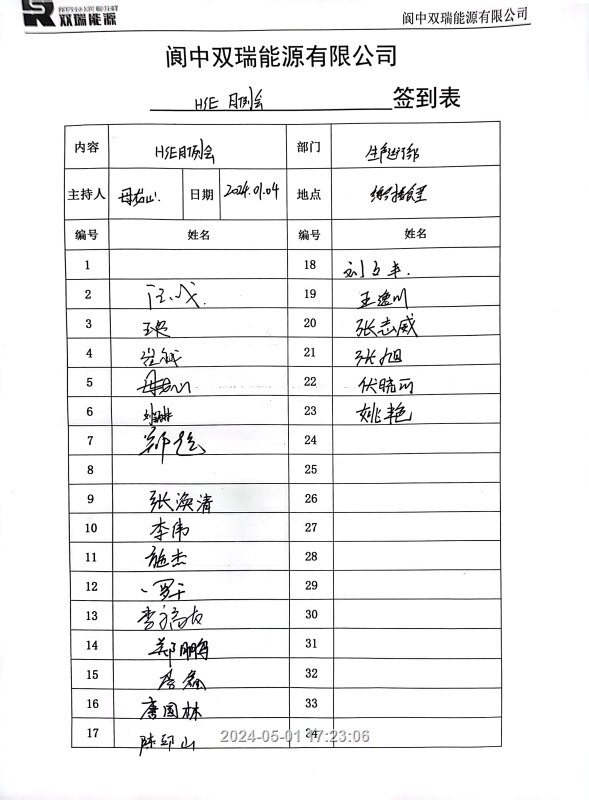 双瑞能源
阆中双瑞能源有限公司
阆中双瑞能源有限公司
HSE 月例会 签到表
内容 HSE月例会 部门 生产运行部
主持人 母右山 日期 2024.01.04 地点
编号 姓名 编号 姓名
1 18 刘
2 汪 19 王逸川
3 20 张志威
4 21 张旭
5 母右山 22 伏晓丽
6 23 姚艳
7 郑 24
8 25
9 张涣清 26
10 李伟 27
11 施杰 28
12 罗 29
13 李 30
14 郑鹏 31
15 李鑫 32
16 唐国林 33
17 陈邱山 34
2024-05-01 17:23:06